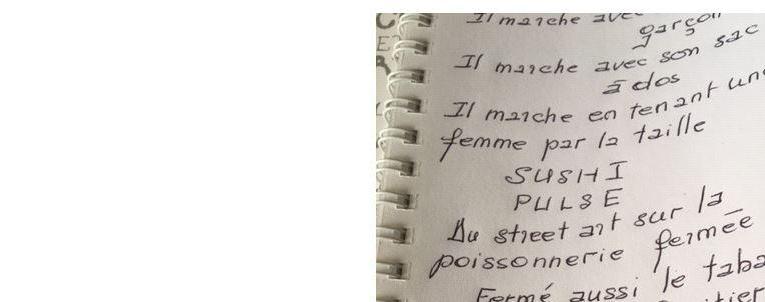 Il marche avec
garçon
Il marche avec son sac
à dos
Il marche en tenant une
femme par la taille
SUSHI
PULSE
Du street art sur la
poissonnerie fermée
Fermé aussi le taba